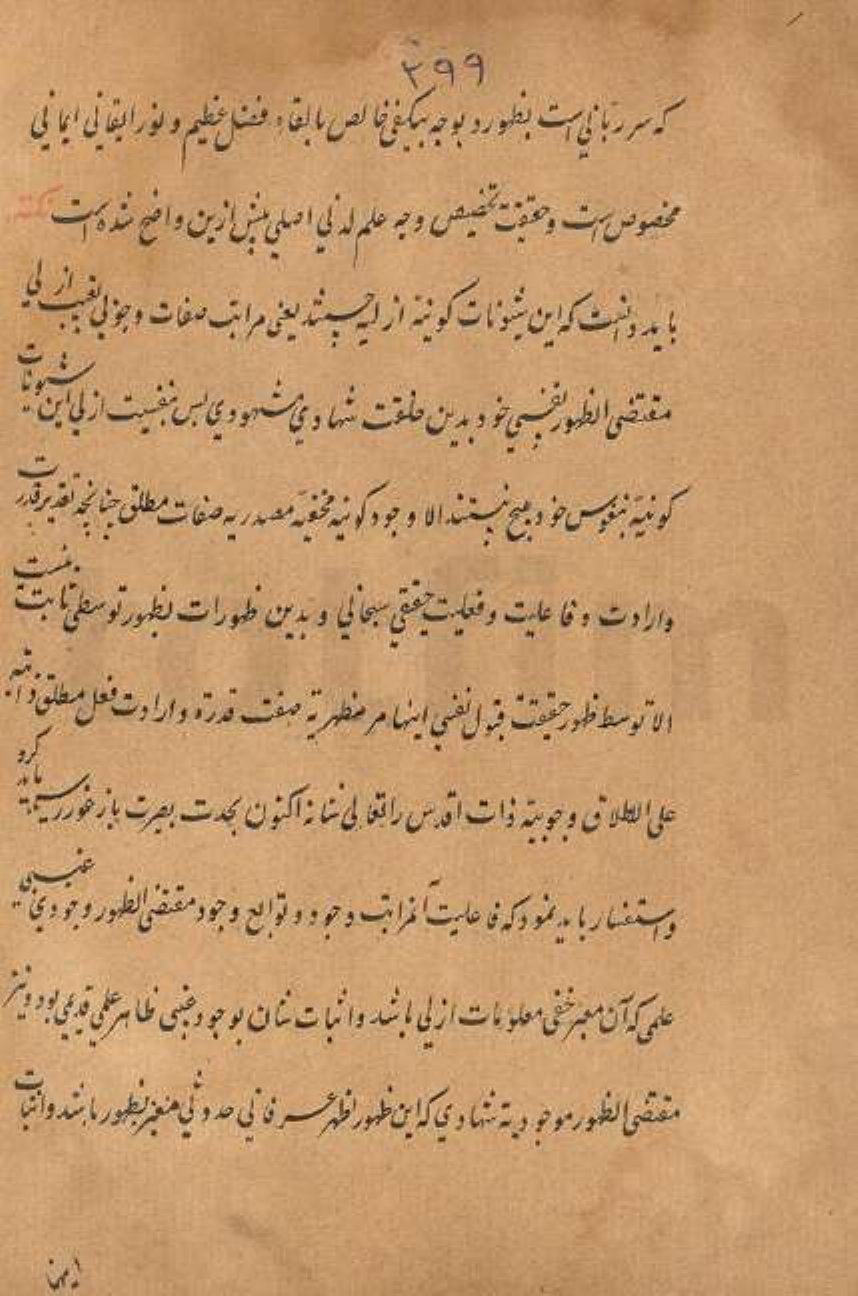 ۳۹۹
که سر ربانی است بظهور و بوجه بیکیفی خالص بالقاء فضل عظیم و نور ایقانی ایمانی
مخصوص است و حقیقت تخصیص وجه علم لدنی اصلی پیش ازین واضح شده است نکته
باید دانست که این شئونات کونیه ازلیه چیستند یعنی مراتب صفات وجوبی بغیب ازلی
مقتضی الظهور بنفسی خود بدین خلقت شهادی مشهودی بس بنفسیت ازلی این شئونات
کونیه بنفوس خود هیچ نیستند الا وجود کونیه مخفیه مصدریه صفات مطلق چنانچه تقدیر قدرت
وارادت و فاعلیت و فعلیت حقیقی سبحانی و بدین ظهورات بظهور توسطی ثابت نیست
الا توسط ظهور حقیقت قبول نفسی اینها مر مظهریة صفت قدرة و ارادت فعل مطلق ذاتیه
علی الاطلاق وجوبیة ذات اقدس را تعالی شانه اکنون بحدت بصرت باز غوررسی باید کرد
و استفسار باید نمود که فاعلیت آنمراتب وجود و توابع وجود مقتضی الظهور وجودی غیبی
علمی که آن معبر خفی معلومات ازلی باشد و اثبات شان بوجود غیبی ظاهر علمی قدیمی بود و نیز
مقتضی الظهور موجودیة شهادی که این ظهور اظهر عرفانی حدوثی متغیر بظهور باشد و اثبات
اینها